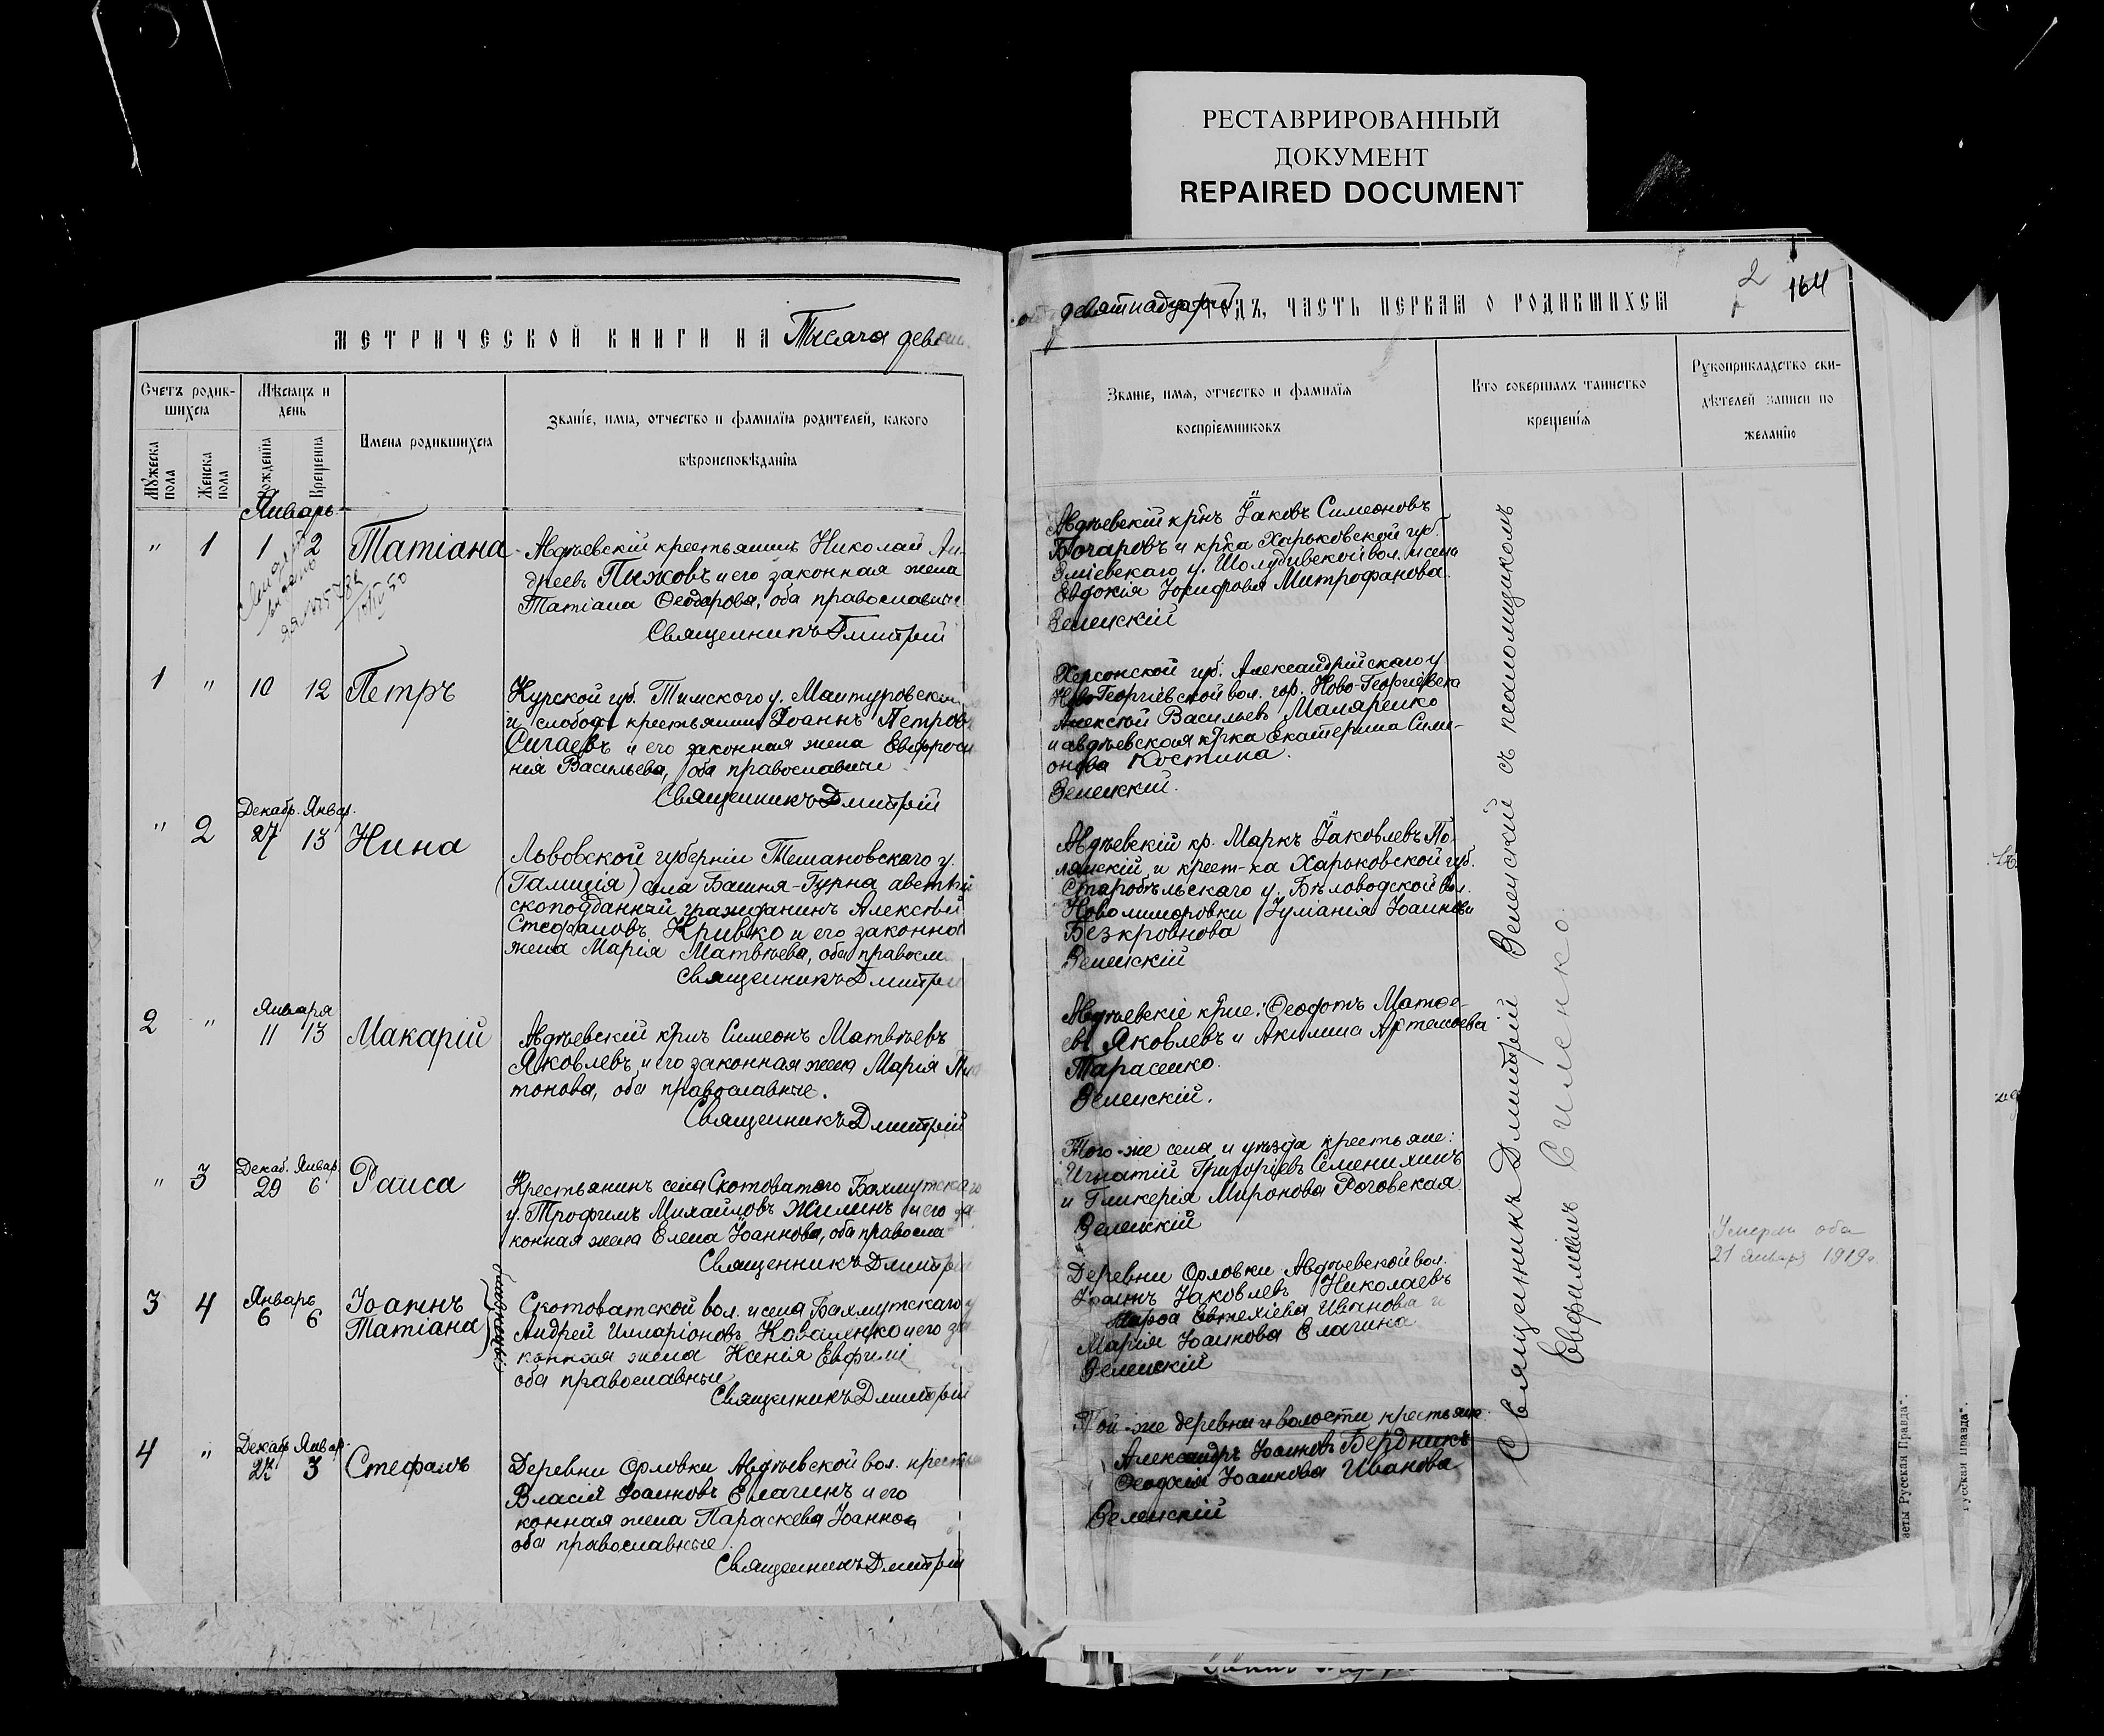 РЕСТАВРИРОВАННЫЙ
ДОКУМЕНТ
REPAIRED DOCUMENT
МЕТРИЧЕСКОЙ КНИГИ НА Тысяча девят
Счетъ родив-
шихся
Мѣсяцъ и
день
Мужеска
пола
Женска
пола
Рожденія
Крещенія
Имена родившихся
Званіе, имя, отчество и фамилія родителей, какого
вѣроисповѣданія
Январь
" 1 1 2 Татіана
Авдѣевскій крестьянинъ Николай Ан-
дреевъ Пыжовъ и его законная жена
Татіана Ѳеодорова, оба православные
Священникъ Дмитрій
1 " 10 12 Петръ
Курской губ. Тимского у. Мантуровской
и слободы крестьянинъ Іоаннъ Петровъ
Сигаевъ и его законная жена Евфроси
нія Васильева, оба православные
Священникъ Дмитрій
Декабр. Январ.
" 2 27 13 Нина
Львовской губерніи Тешановского у.
(Галиція) села Башня-Гурна австрій
скоподданный гражданинъ Алексѣй
Стефановъ Кривко и его законная
жена Марія Матвѣева, оба правосл
Священникъ Дмитрі
Января
2 " 11 13 Макарій
Авдѣевскій кр-нъ Симеонъ Матвѣевъ
Яковлевъ и его законная жена Марія
тонова, оба православные.
Священникъ Дмитрій
Декаб. Январ.
" 3 29 6 Раиса
Крестьянинъ села Скотоватого Бахмутскаго
у. Трофимъ Михайловъ Жилинъ и его за
конная жена Елена Іоаннова, оба правосла
Священникъ Дмитрі
Январь
3 4 6 6 Іоаннъ
Татіана
Скотоватской вол. и села Бахмутскаго у
Андрей Илларіоновъ Коваленко и его за
конная жена Ксенія Евфимі
оба православные
Священникъ Дмитрій
Декабр Январ.
4 " 27 3 Стефанъ
Деревни Орловки Авдѣевской вол. крестья
Власій Іоанновъ Елагинъ и его
конная жена Параскева Іоаннов
оба православные.
Священникъ Дмитрій
девятнадцатый ГОДЪ, ЧАСТЬ ПЕРВАЯ О РОДИВШИХСЯ
2
164
Званіе, имя, отчество и фамилія
воспріемниковъ
Кто совершалъ таинство
крещенія
Рукоприкладство сви-
дѣтелей записи по
желанію
Авдѣевскій кр-нъ Іаковъ Симеоновъ
Бочаровъ и кр-ка Харьковской губ.
Зміевскаго у. Шолудивской вол. и села
Евдокія Іосифова Митрофанова.
Зеленскій
Херсонской губ. Александрійскаго у.
Ново-Георгіевской вол. гор. Ново-Георгіевска
Алексѣй Васильевъ Маляренко
и авдѣевская кр-ка Екатерина Симе-
онова Костина.
Зеленскій.
Авдѣевскій кр. Маркъ Іаковлевъ По-
лянскій и крест-ка Харьковской губ.
Старобѣльскаго у. Бѣловодской вол.
Новолимаровки Іуліанія Іоаннова
Безкровнова
Зеленскій
Авдѣевскіе кр-не: Ѳеодотъ Матвѣ-
евъ Яковлевъ и Акилина Артемьева
Тарасенко.
Зеленскій.
Того-же села и уѣзда крестьяне:
Игнатій Григоріевъ Семенихинъ
и Гликерія Миронова Роговская.
Зеленскій
Деревни Орловки Авдѣевской вол.
Іоаннъ Іаковлевъ Николаевъ
Марѳа Евтехіева Иванова и
Марія Іоаннова Елагина
Зеленскій
Той-же деревни и волости крестьяне:
Александръ Іоанновъ Бердникъ
Ѳеодосія Іоаннова Иванова
Зеленскій
Священникъ Дмитрій Зеленскій съ псаломщикомъ
Евфиміемъ Силенко
Умерли оба
21 января 1919г.
зеты Русская Правда".
Русская Правда".